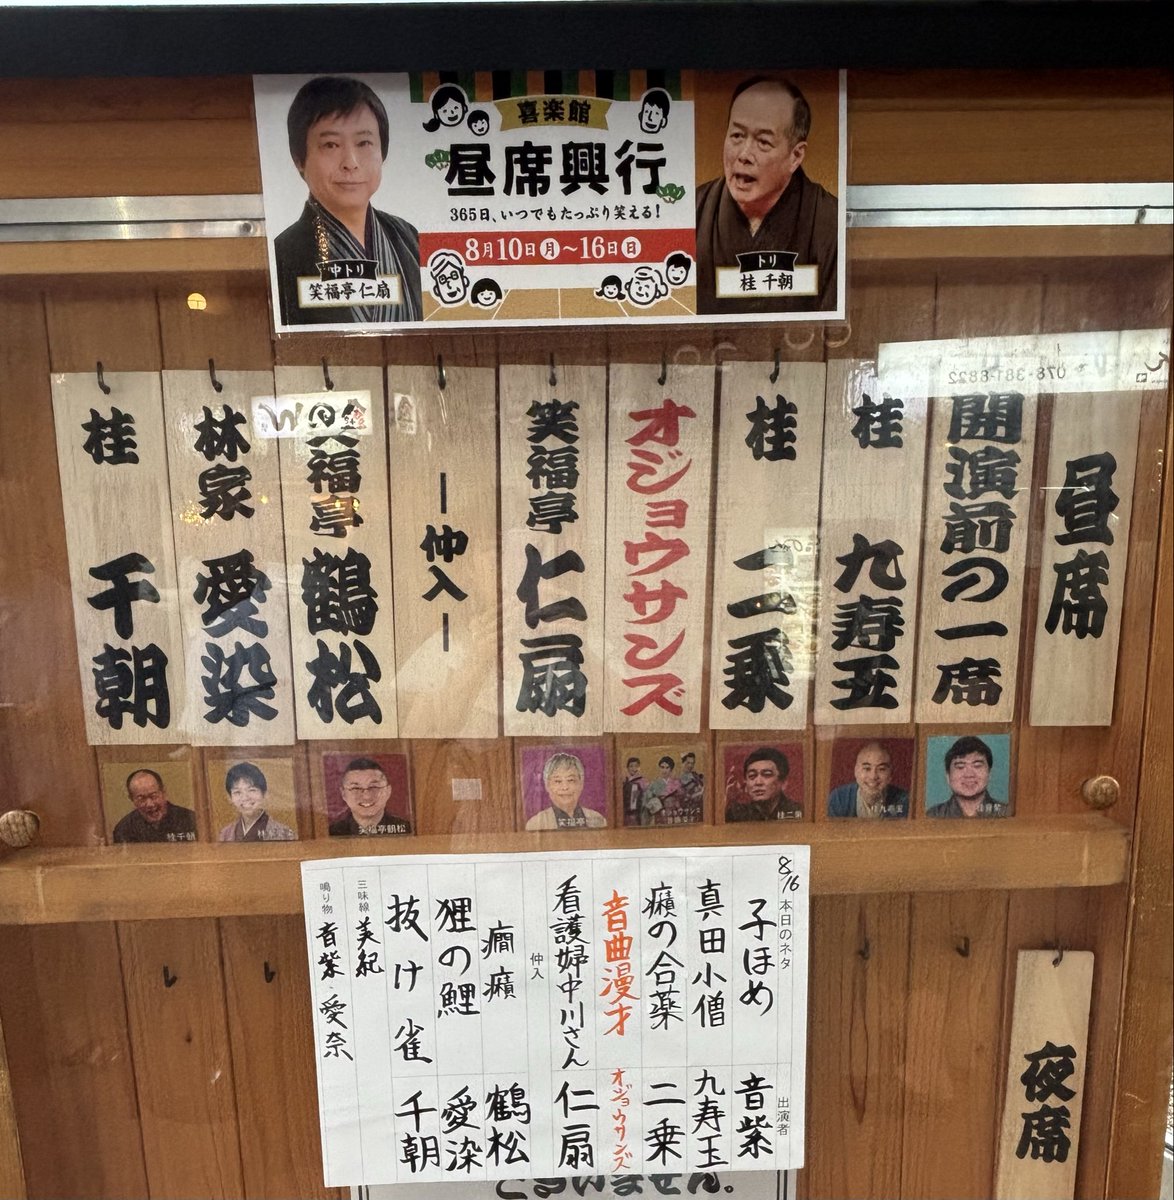 喜楽館
昼席興行
365日、いつでもたっぷり笑える!
8月10日月〜16日日
中トリ
笑福亭 仁扇
トリ
桂 千朝
078-381-8822
昼席
開演前の一席
桂 九寿玉
桂 二乗
オジョウサンズ
笑福亭 仁扇
―仲入―
笑福亭 鶴松
林家 愛染
桂 千朝
桂千朝
笑福亭鶴松
オジョウサンズ
桂二乗
桂九寿玉
8/16 本日のネタ 出演者
子ほめ 音紫
真田小僧 九寿玉
癪の合薬 二乗
音曲漫才 オジョウサンズ
看護婦中川さん 仁扇
仲入
癇癪 鶴松
狸の鯉 愛染
抜け雀 千朝
三味線 美紀
鳴り物 音紫・愛奈
夜席
ございません。